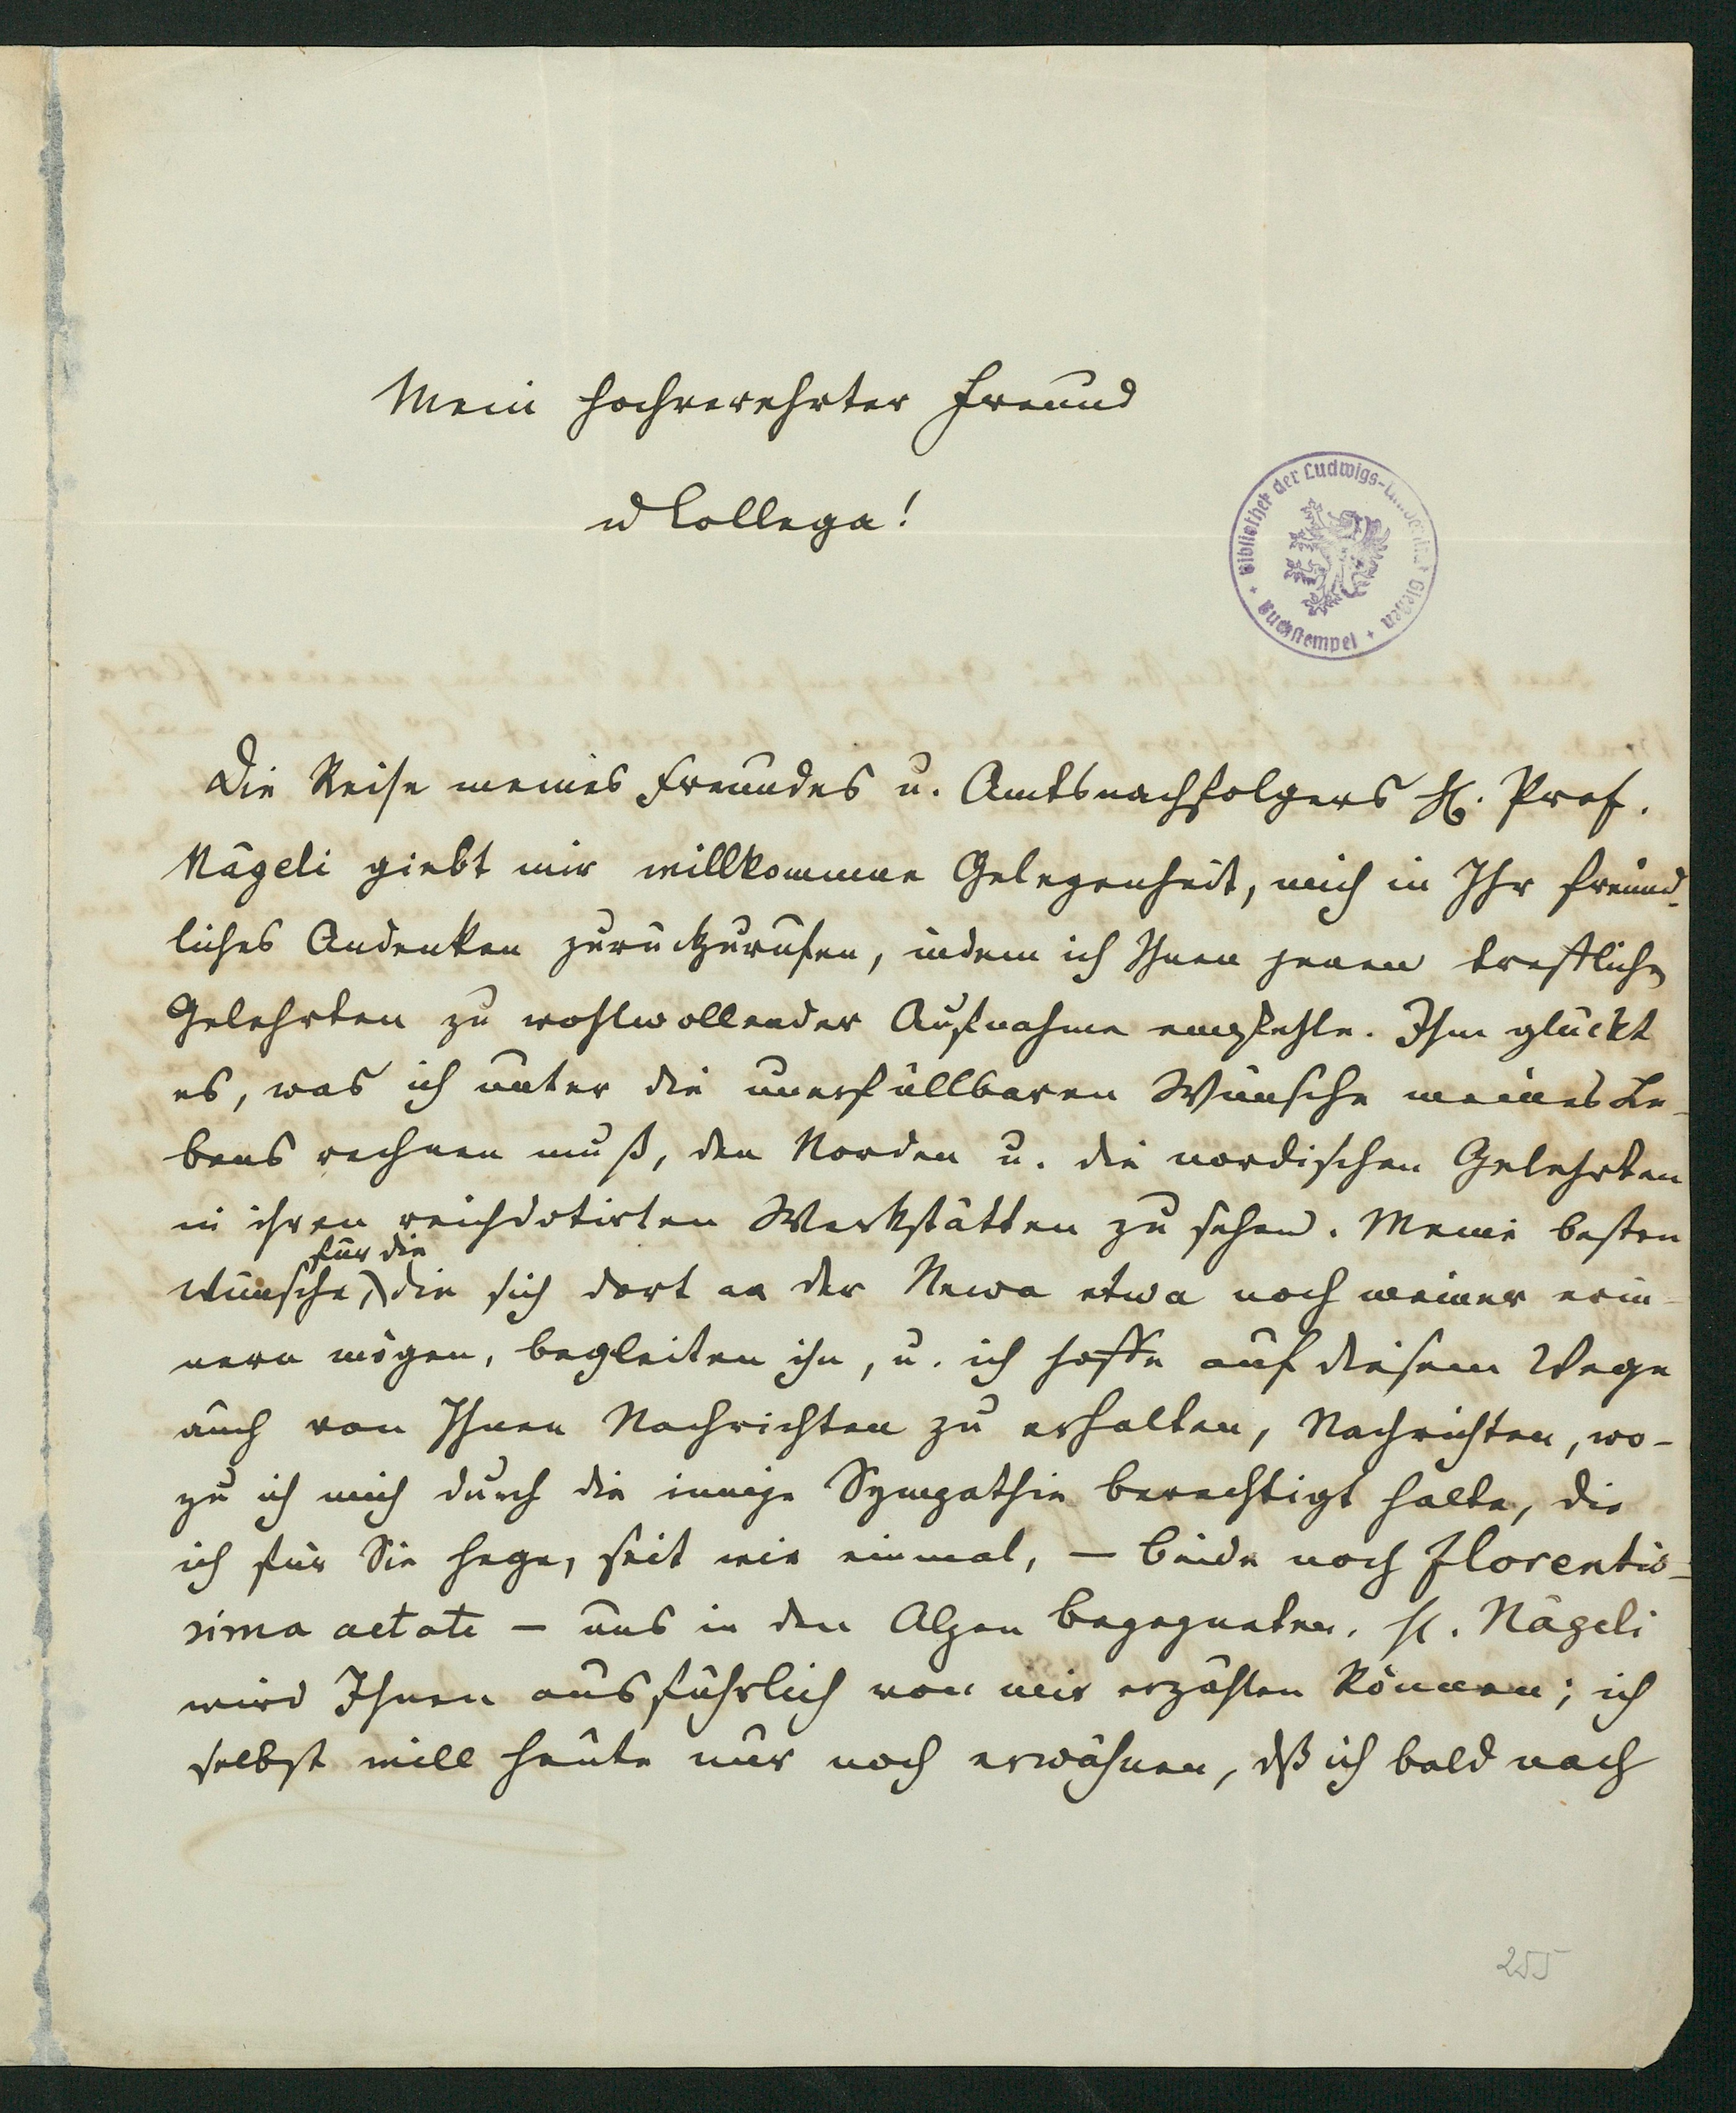 Mein hochverehrter Freund
u Collega!
Bibliothek der Ludwigs-Universität Gießen
Buchstempel
Die Reise meines Freundes u. Amtsnachfolgers H. Prof.
Nägeli giebt mir willkommne Gelegenheit, mich in Ihr freund-
liches Andenken zurückzurufen, indem ich Ihnen jenen trefflichen
Gelehrten zu wohlwollender Aufnahme empfehle. Ihm glückt
es, was ich unter die unerfüllbaren Wünsche meines Le-
bens rechnen muß, den Norden u. die nordischen Gelehrten
in ihren reichdotirten Werkstätten zu sehen. Meine besten
für die
Wünsche, die sich dort an der Newa etwa noch meiner erin-
nern mögen, begleiten ihn, u. ich hoffe auf diesem Wege
auch von Ihnen Nachrichten zu erhalten, Nachrichten, wo-
zu ich mich durch die innige Sympathie berechtigt halte, die
ich für Sie hege, seit wir einmal, – beide noch florentis-
sima aetate – uns in den Alpen begegneten. H. Nägeli
wird Ihnen ausführlich von mir erzählen können; ich
selbst will heute nur noch erwähnen, dß ich bald nach
255